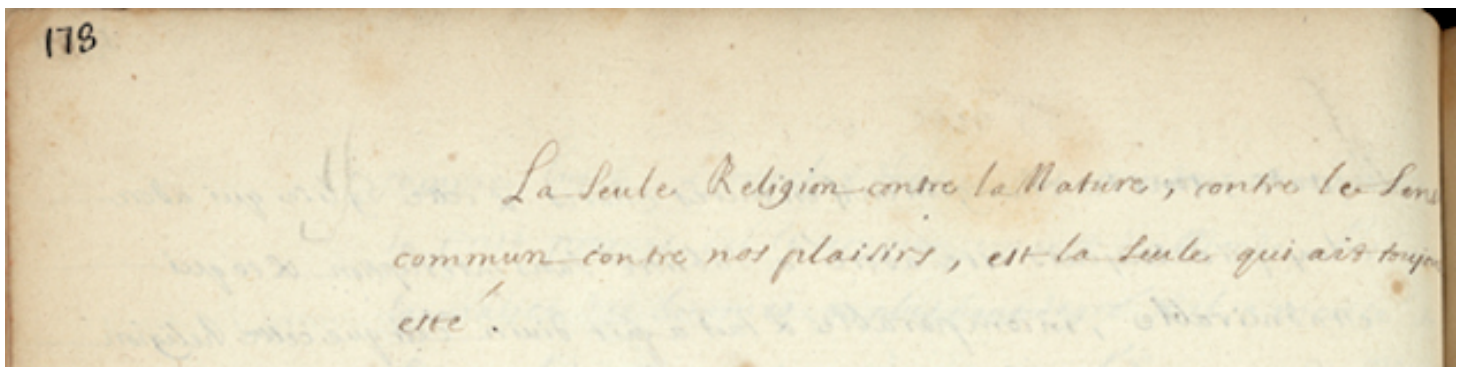 178
La seule Religion contre la Nature, contre le sens
commun contre nos plaisirs, est la seule qui ait toujou
esté.